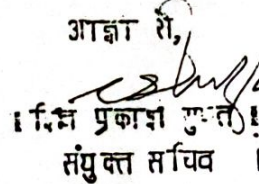 आज्ञा से,
प्रकाश गुप्त
संयुक्त सचिव